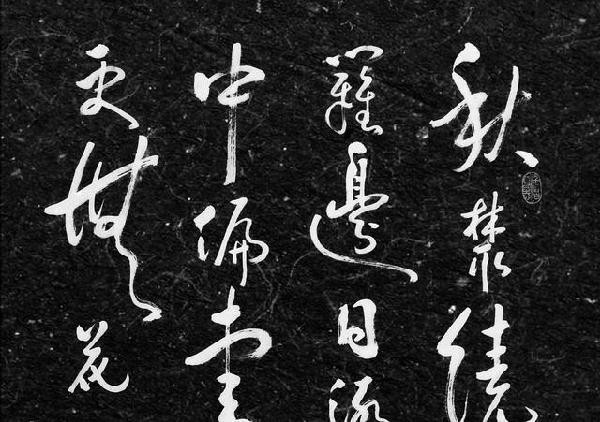 秋叢繞
籬邊日漸
中偏愛
更無花